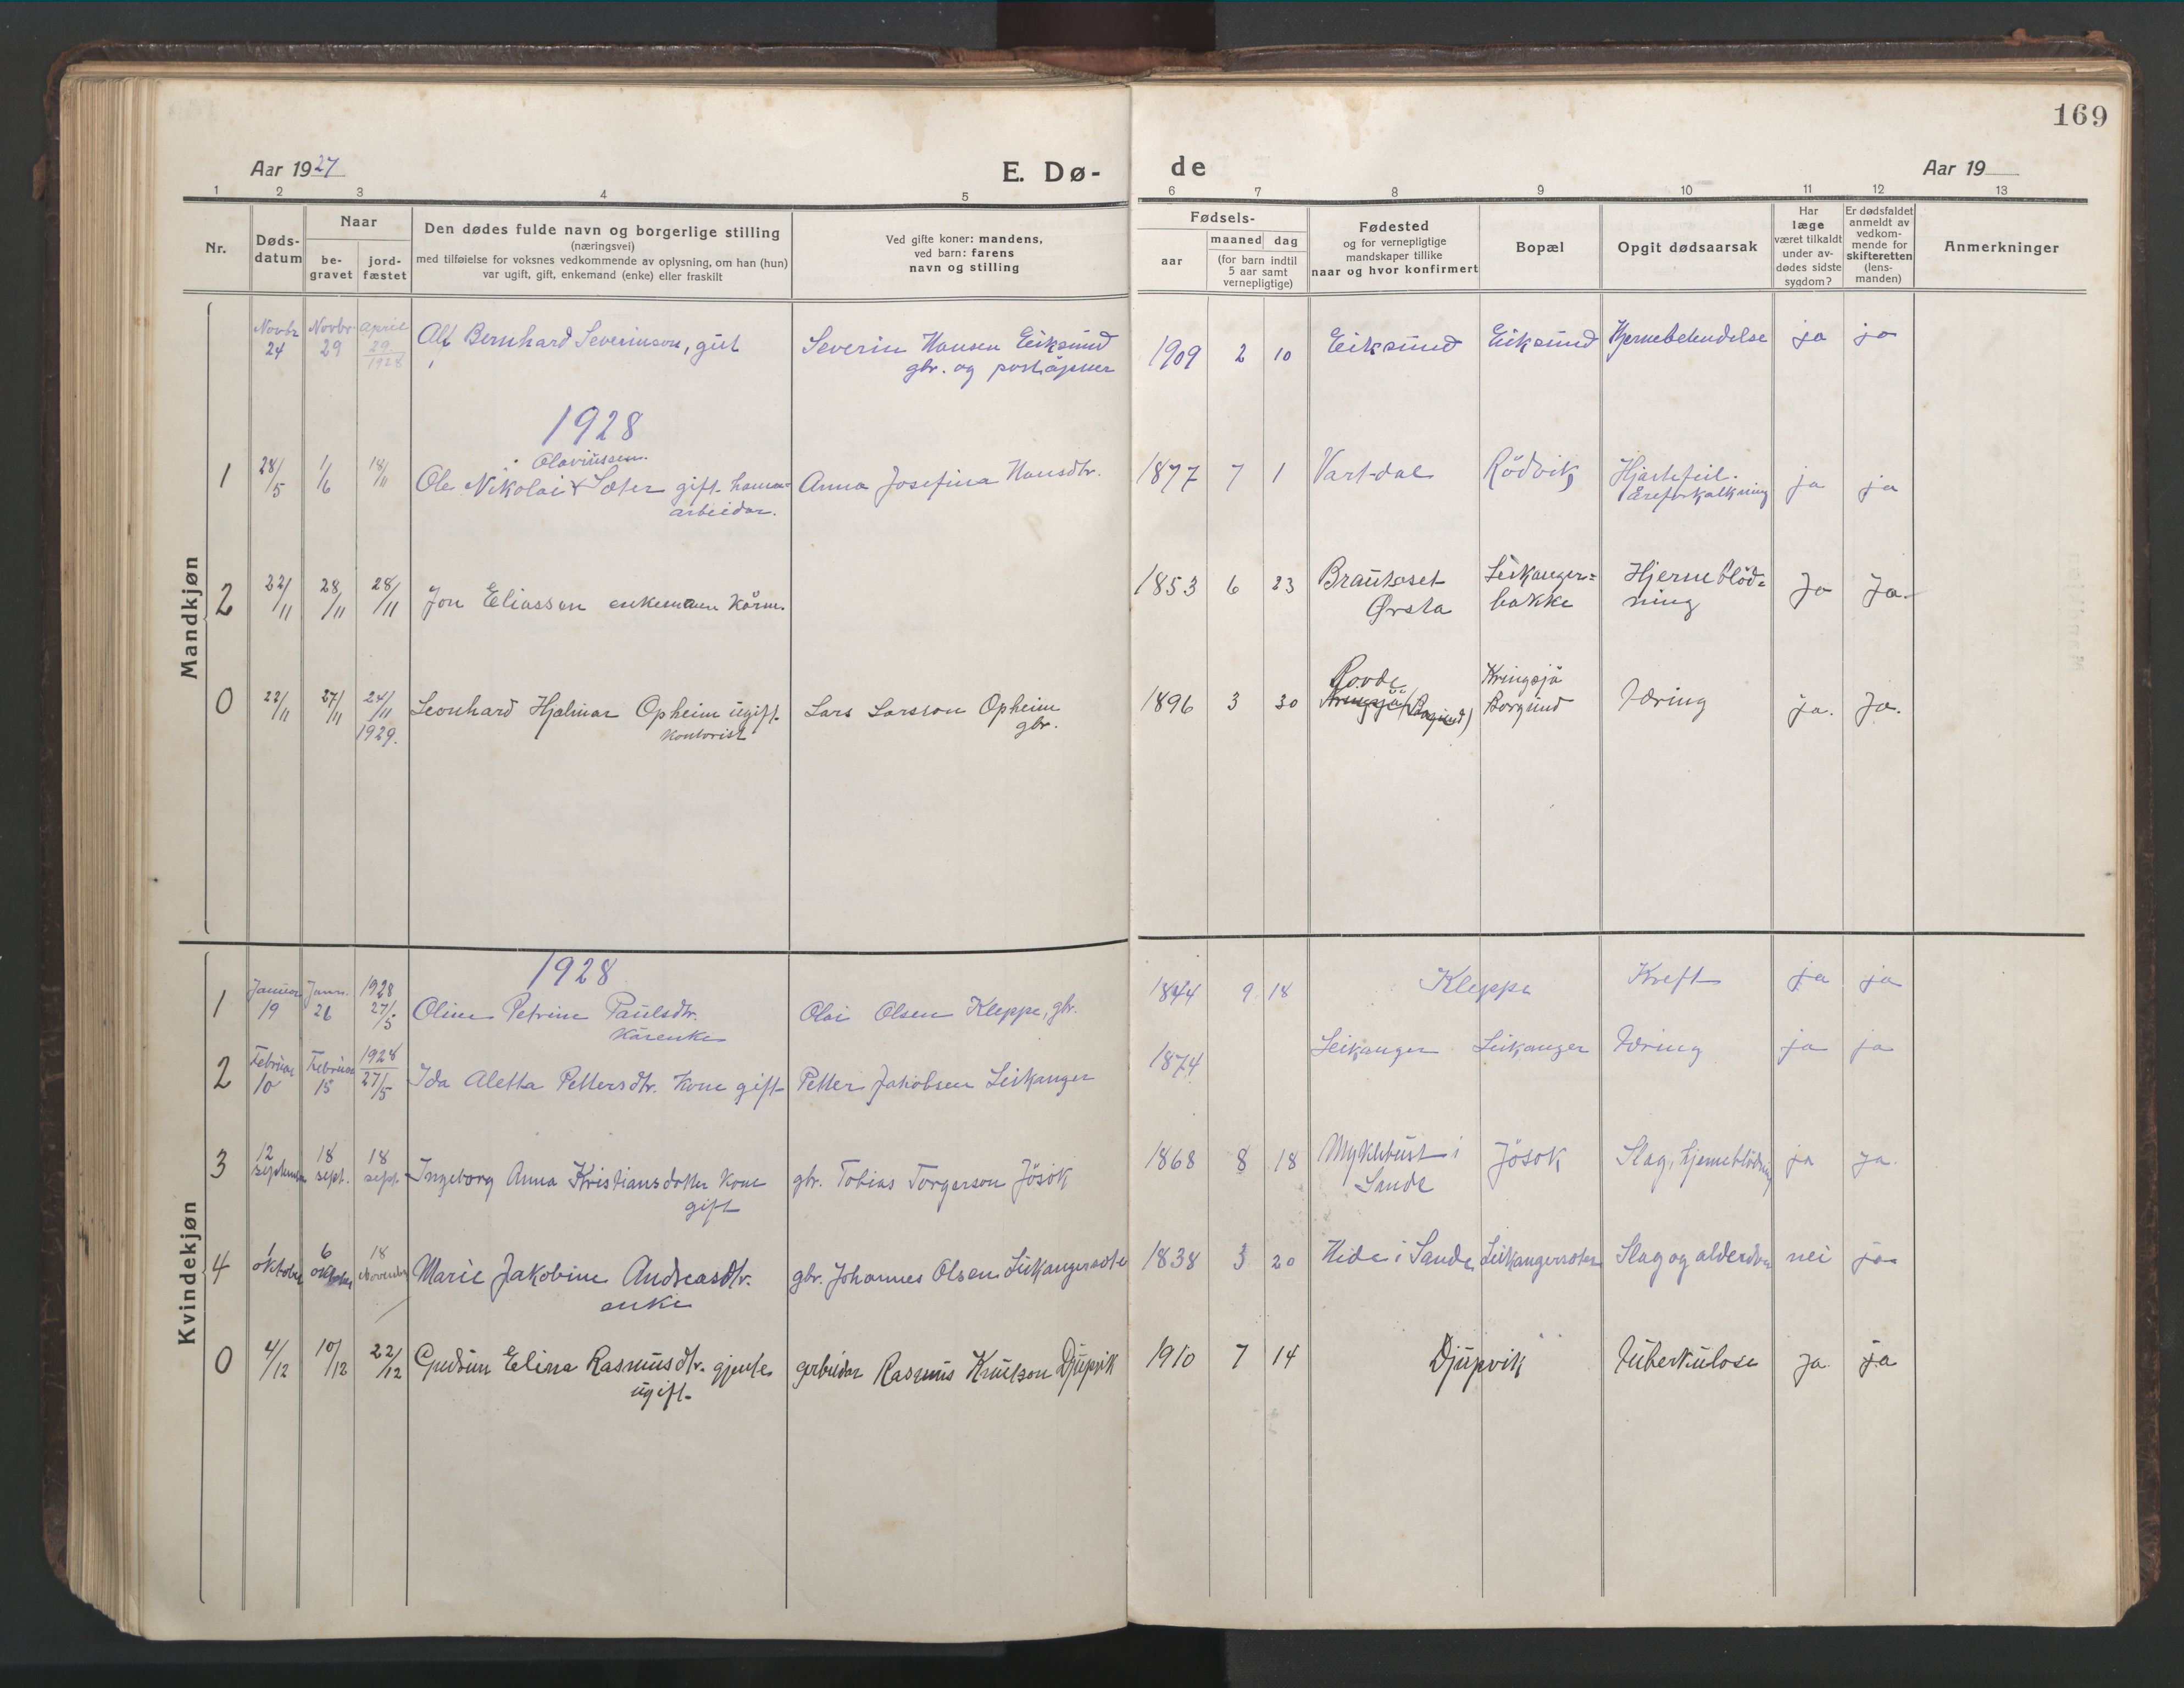 169
Aar 1927 E. Dø- de Aar 19
1 2 3 4 5 6 7 8 9 10 11 12 13
Nr.
Døds-
datum
Naar
be-
gravet
jord-
fæstet
Den dødes fulde navn og borgerlige stilling
(næringsvei)
med tilføielse for voksnes vedkommende av oplysning, om han (hun)
var ugift, gift, enkemand (enke) eller fraskilt
Ved gifte koner: mandens,
ved barn: farens
navn og stilling
Fødsels-
aar
maaned dag
(for barn indtil
5 aar samt
vernepligtige)
Fødested
og for vernepligtige
mandskaper tillike
naar og hvor konfirmert
Bopæl
Opgit dødsaarsak
Har
læge
været tilkaldt
under av-
dødes sidste
sygdom?
Er dødsfaldet
anmeldt av
vedkom-
mende for
skifteretten
(lens-
manden)
Anmerkninger
Mandkjøn
Novbr 24 Novbr 29 April 29 1928 Alf Bernhard Severinson, gut Severin Hansen Eiksund
gbr. og poståpner 1909 2 10 Eiksund Eiksund ja ja
1928
Olaviussen.
1 28/5 1/6 18/11 Ole Nikolai Sæter gift hama=
arbeidar. Anna Josefina Hansdtr. 1877 7 1 Vartdal Rödvik Hjartefeil.
åreforkalkning ja ja
2 22/11 28/11 28/11 Jon Eliassen enkemann kårm. 1853 6 23 Brautaset
Ørsta Leikanger=
bakke Hjerneblöd=
ning Ja Ja.
0 22/11 27/11 24/11 1929. Leonhard Hjalmar Opheim ugift
kontorist Lars Larsson Opheim
gbr. 1896 3 30 Rovde
(Borgund) Kringsjå
Borgund Tæring ja. Ja.
Kvindekjøn
1928
1 Januar 19 Janu. 26 1928 27/5 Oline Petrine Paulsdtr.
kårenke Olai Olsen Kleppe, gbr. 1844 9 18 Kleppe Kreft ja ja
2 Februar 10 Februar 15 1928 27/5 Ida Aletta Pettersdtr. kone gift Petter Jakobsen Leikanger 1874 Leikanger Leikanger Tæring ja ja
3 12 september 18 sept. 18 sept. Ingeborg Anna Kristiansdotter kone
gift gbr. Tobias Torgerson Jösok 1868 8 18 Myklebust i
Sande Jösok Slag, hjerneblödning ja ja.
4 1 oktober 6 oktober 18 November Marie Jakobine Andreasdtr.
enke gbr. Johannes Olsen Leikangersæter 1838 3 20 Hide i Sande Leikangersæter Slag og alderdom nei ja
0 4/12 10/12 22/12 Gudrun Elina Rasmusdtr. gjente
ugift arbeidar Rasmus Knutson Djupvik 1910 7 14 Djupvik Tuberkulose ja. ja